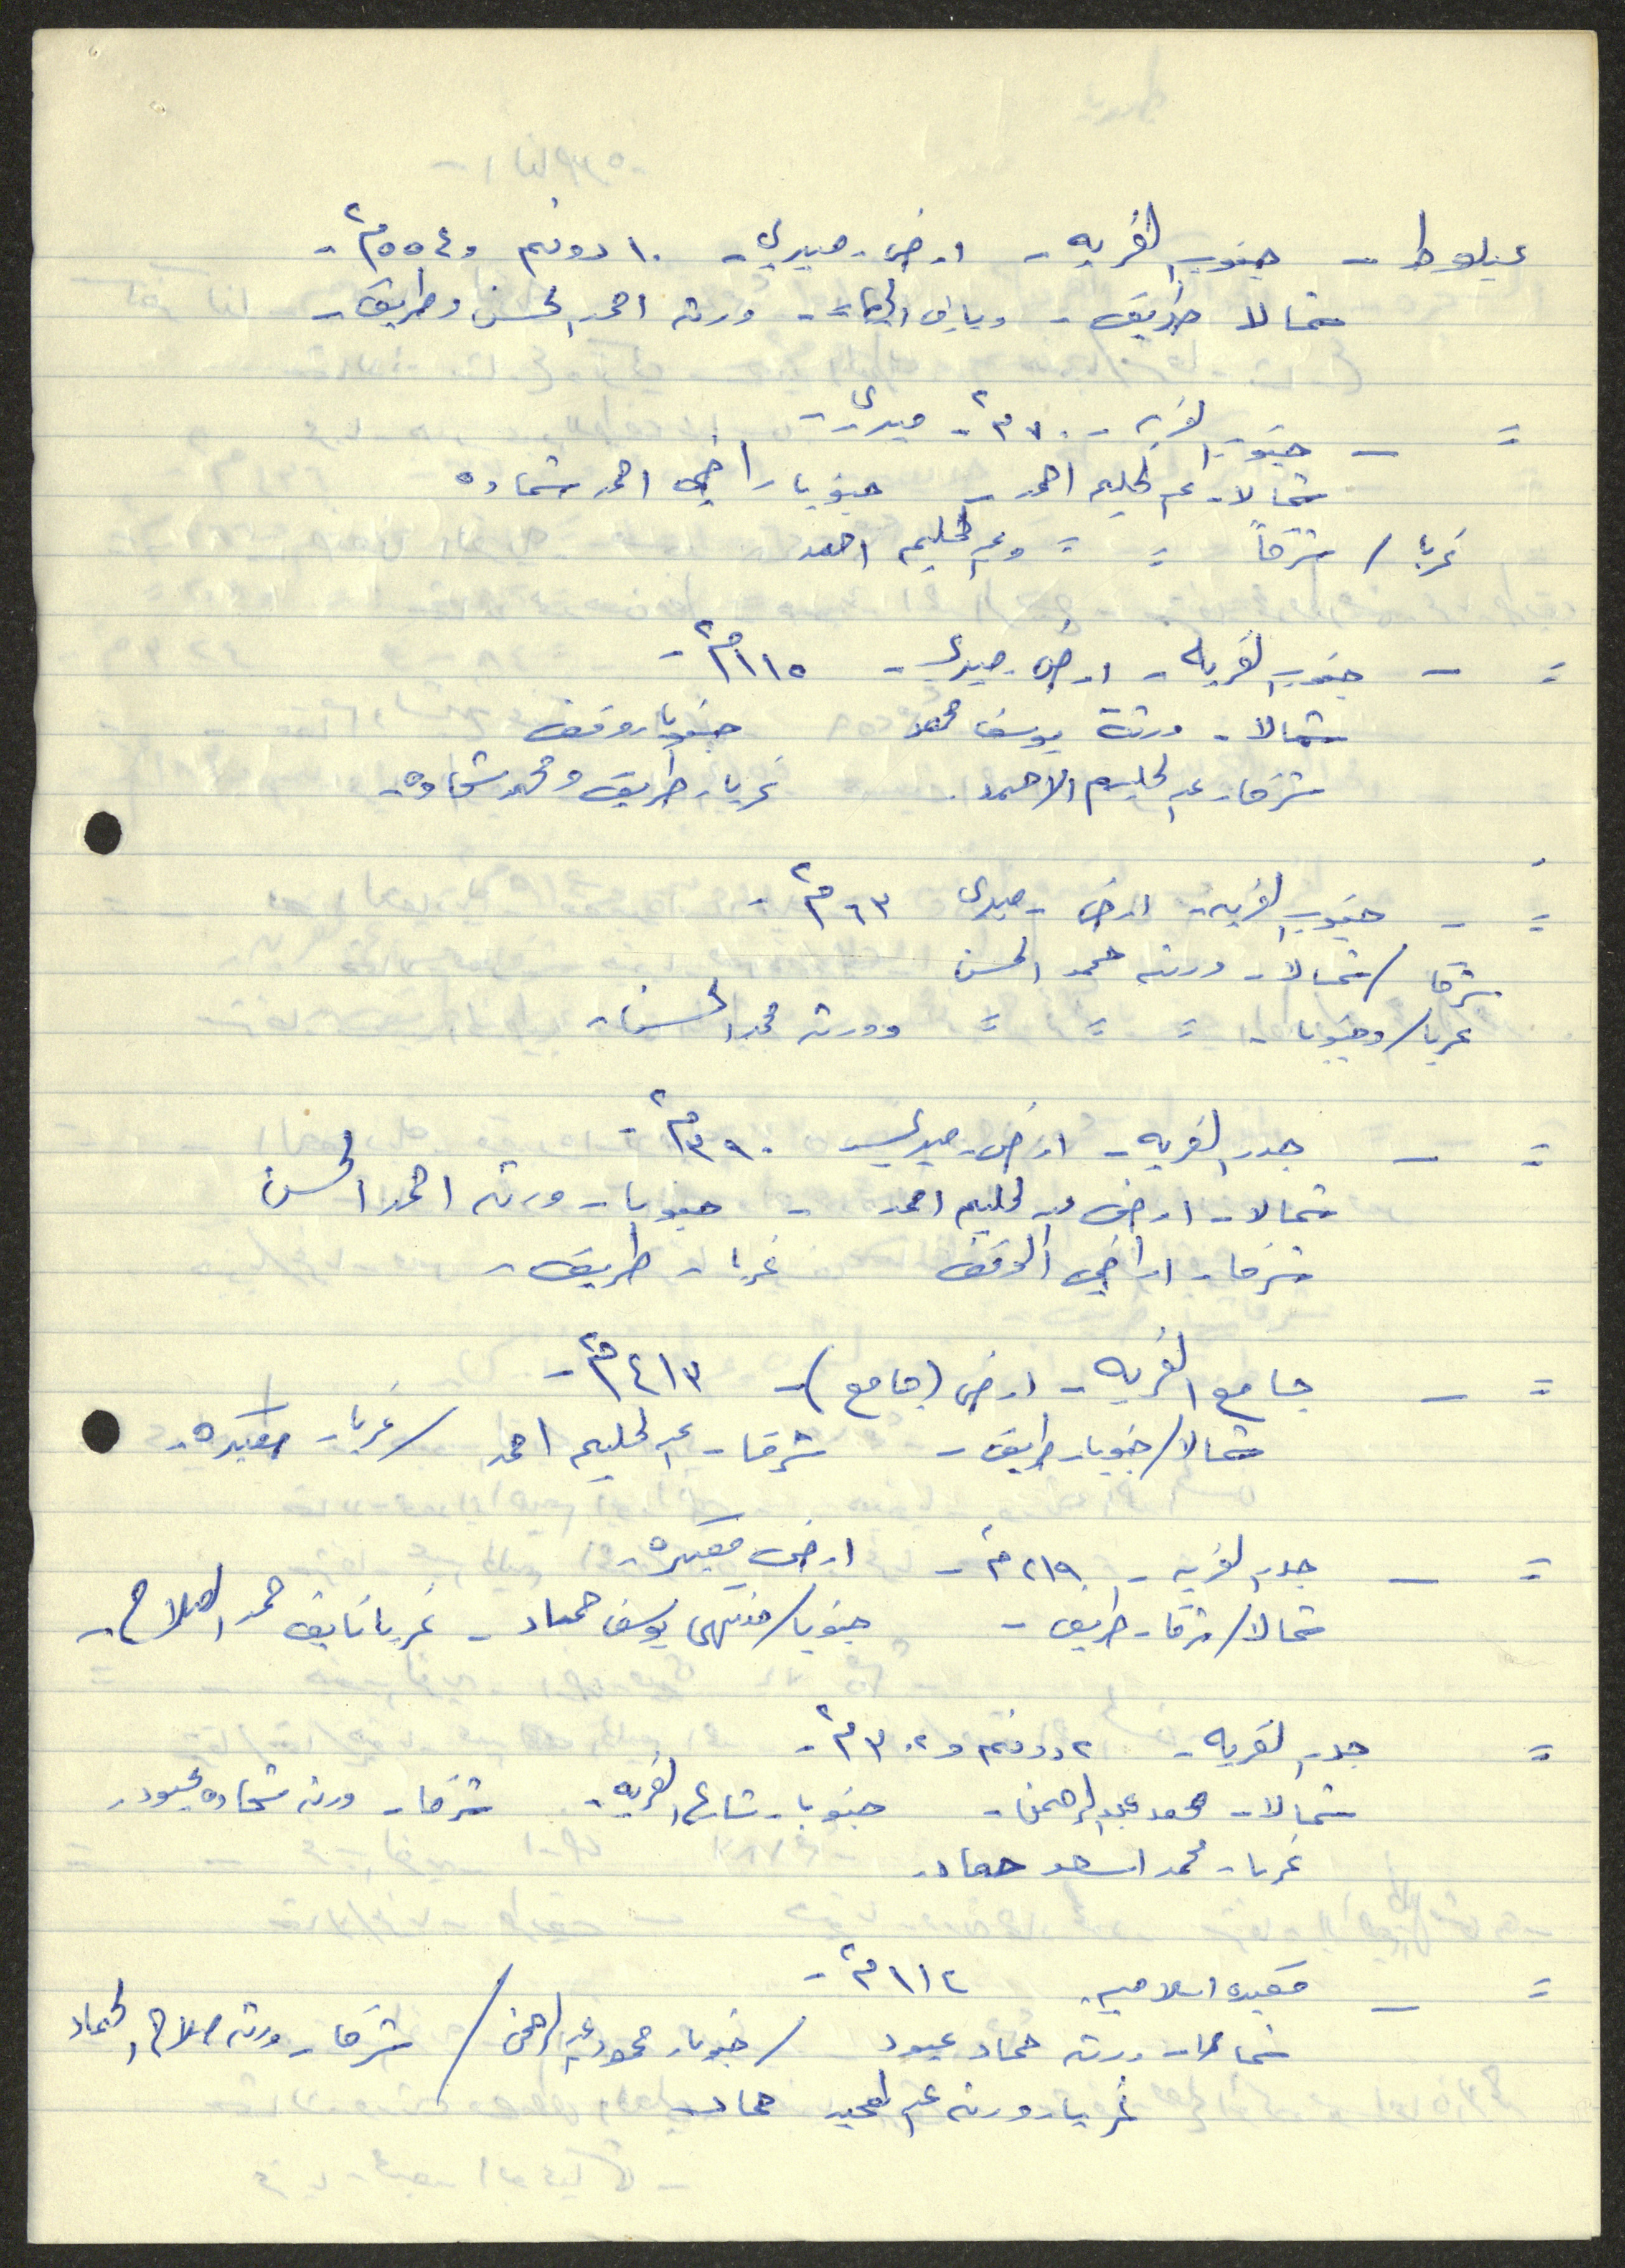 عيلوط - جنوب القريه - ارض ميري - ١٠ دونم و ٥٥٤م٢ -
شمالا طريق - وباقي الجهات - ورثه احمد الحسن وطريق -
= - جنوب القريه - ٧٠م٢ - ميري -
شمالا - عبد الحليم احمد - جنوبا - اراضي احمد شحاده
غربا / شرقاً = = وعبد الحليم احمد
= - جنوب القريه - ارض ميري - ١١٥م٢ -
شمالا - ورثة يوسف محمد جنوبا - وقف
شرقا - عبد الحليم الاحمد - غربا - طريق ومحمد شحاده -
= - جنوب القريه - ارض - ميري ٦٣م٢ -
شرقا / شمالا - ورثه حمد الحسن
غربا / وجنوبا - = = = وورثه محمد الحسن -
= - جدر القريه - ارض - ميري - ٣٩٠م٢ -
شمالا - ارض عبد الحليم احمد - جنوبا - ورثه احمد الحسن
شرقا - اراضي الوقف غربا - طريق -
= - جامع القريه - ارض (جامع) - ٤١٣م٢ -
شمالا / جنوبا - طريق - شرقا - عبد الحليم احمد / غربا - مقبره -
= - جدر القريه - ٢١٩م٢ - ارض مقبره -
شمالا / شرقا - طريق - جنوبا / منتهى يوسف حماد - غربا نايف حمد الصلاح -
= جدر القريه - ٢ دونم و ٣٠٢م٢ -
شمالا - محمد عبد الرحمن - جنوبا - شارع القريه - شرقا - ورثه شحاده عبود -
غربا - محمد اسعد حماد -
= - مقبره اسلاميه - ١١٢م٢ -
شمالا - ورثه حماد عبود / جنوبا - محمود عبد الرحمن / شرقا - ورثه صلاح الحماد
غربا - ورثه عبد المجيد حماد -